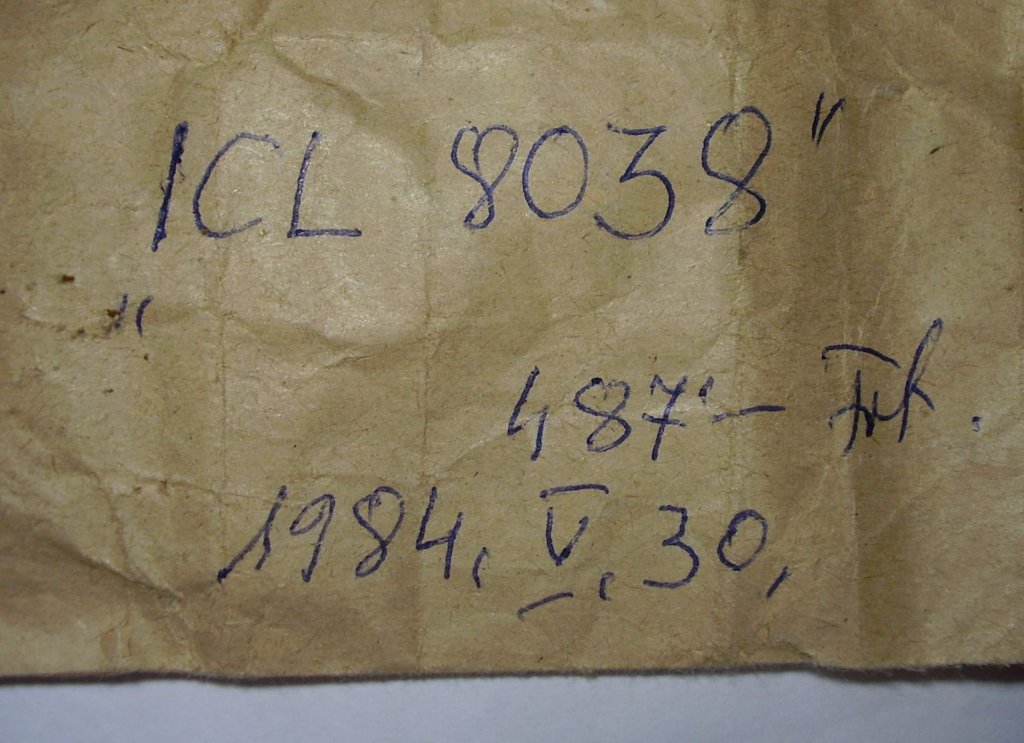 ICL 8038"
"
487'- Frk.
1984. V. 30.